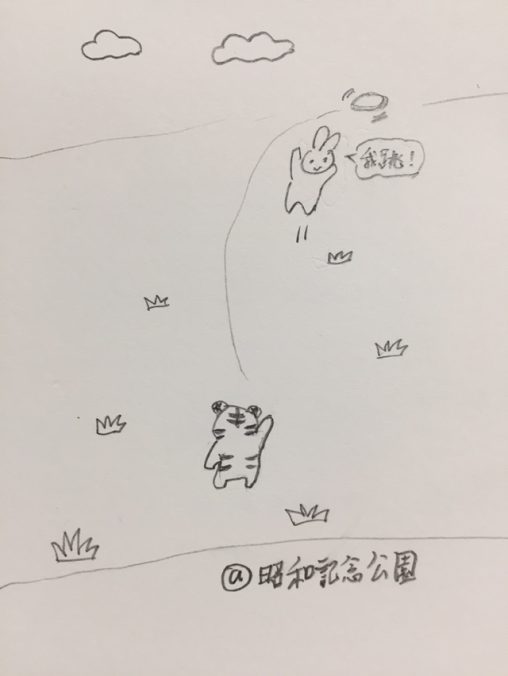 我跳!
@昭和記念公園